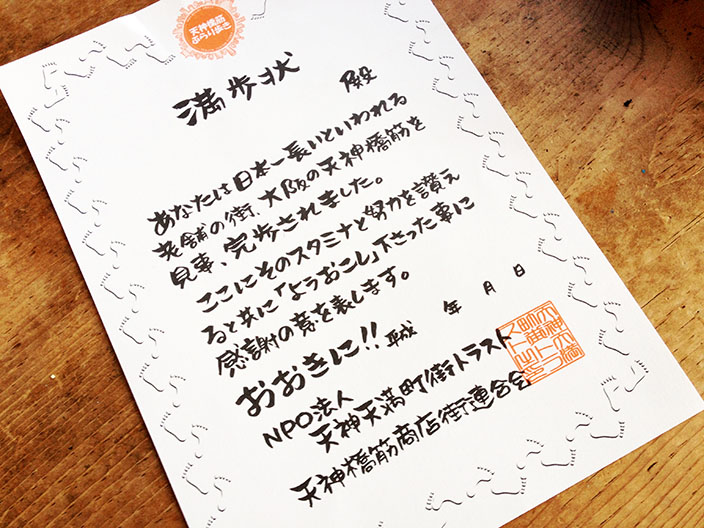 天神橋筋
ぶらりあるき
満歩状
殿
あなたは日本一長いといわれる
老舗の街、大阪の天神橋筋を
見事、完歩されました。
ここにそのスタミナと努力を讃え
ると共に「ようおこし」下さった事に
感謝の意を表します。
おおきに!!
平成 年 月 日
NPO法人
天神天満町街トラスト
天神橋筋商店街連合会